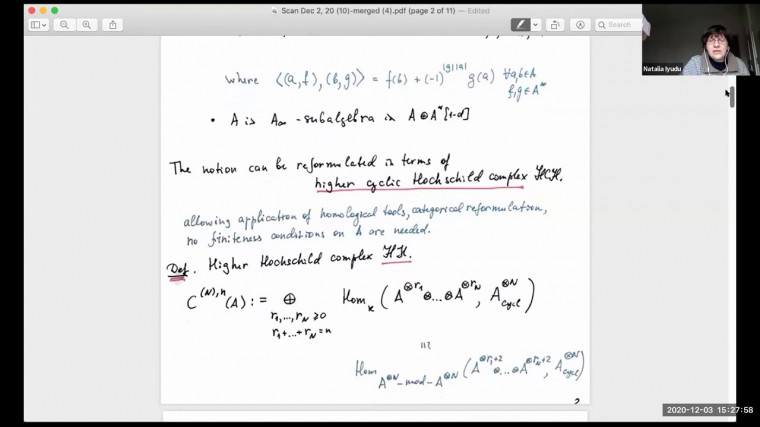 Scan Dec 2, 20 (10)-merged (4).pdf (page 2 of 11) — Edited
Search
Natalia Iyudu
where ⟨(a,f), (b,g)⟩ = f(b) + (-1)^{|g||a|} g(a) ∀a,b∈A
f,g∈A*
• A is A∞ -subalgebra in A⊕A*[1-d]
The notion can be reformulated in terms of
higher cyclic Hochschild complex
allowing application of homological tools, categorical reformulation,
no finiteness conditions on A are needed.
Def. Higher Hochschild complex
C^{(N),n}(A) := ⊕ Hom_K (A^{⊗r₁}⊗...⊗A^{⊗r_N}, A^{⊗N}_{cycl})
r₁,...,r_N ≥0
r₁+...+r_N=n
Hom_{A^{⊗N}-mod-A^{⊗N}} (A^{⊗r₁+2}⊗...⊗A^{⊗r_N+2}, A^{⊗N}_{cycl})
2
2020-12-03 15:27:58